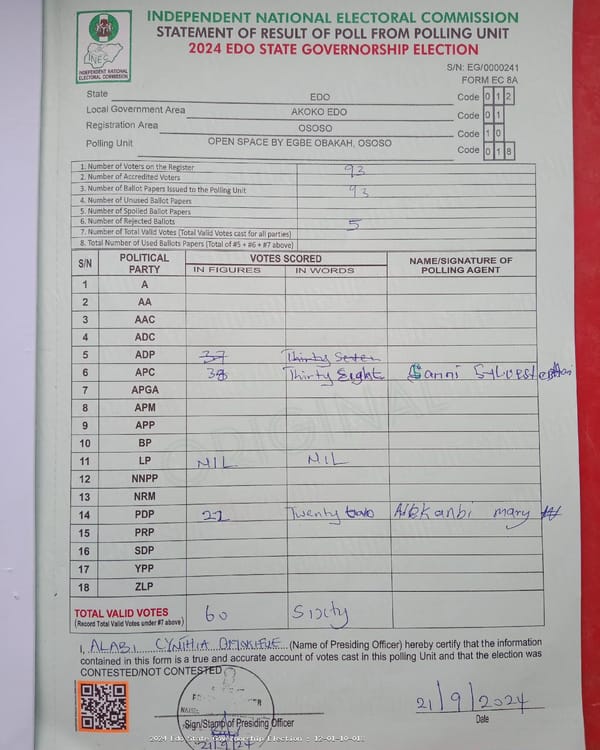 INDEPENDENT NATIONAL ELECTORAL COMMISSION
STATEMENT OF RESULT OF POLL FROM POLLING UNIT
2024 EDO STATE GOVERNORSHIP ELECTION
INEC
INDEPENDENT NATIONAL
ELECTORAL COMMISSION
S/N: EG/0000241
FORM EC 8A
State EDO Code 0 1 2
Local Government Area AKOKO EDO Code 0 1
Registration Area OSOSO Code 1 0
Polling Unit OPEN SPACE BY EGBE OBAKAH, OSOSO Code 0 1 8
1. Number of Voters on the Register 93
2. Number of Accredited Voters
3. Number of Ballot Papers Issued to the Polling Unit 93
4. Number of Unused Ballot Papers
5. Number of Spoiled Ballot Papers
6. Number of Rejected Ballots 5
7. Number of Total Valid Votes (Total Valid Votes cast for all parties)
8. Total Number of Used Ballots Papers (Total of #5 + #6 + #7 above)
S/N POLITICAL PARTY VOTES SCORED NAME/SIGNATURE OF POLLING AGENT
IN FIGURES IN WORDS
1 A
2 AA
3 AAC
4 ADC
5 ADP 37 Thirty Seven
6 APC 38 Thirty Eight Sanni
7 APGA
8 APM
9 APP
10 BP
11 LP NIL NIL
12 NNPP
13 NRM
14 PDP 22 Twenty two mary
15 PRP
16 SDP
17 YPP
18 ZLP
ORIGINAL
TOTAL VALID VOTES 60 Sixty
(Record Total Valid Votes under #7 above)
I, ALABI CYNTHIA (Name of Presiding Officer) hereby certify that the information
contained in this form is a true and accurate account of votes cast in this polling Unit and that the election was
CONTESTED/NOT CONTESTED
21/9/2024
Sign/Stamp of Presiding Officer Date
21/9/24
2024 Edo State Governorship Election - 12-01-10-018